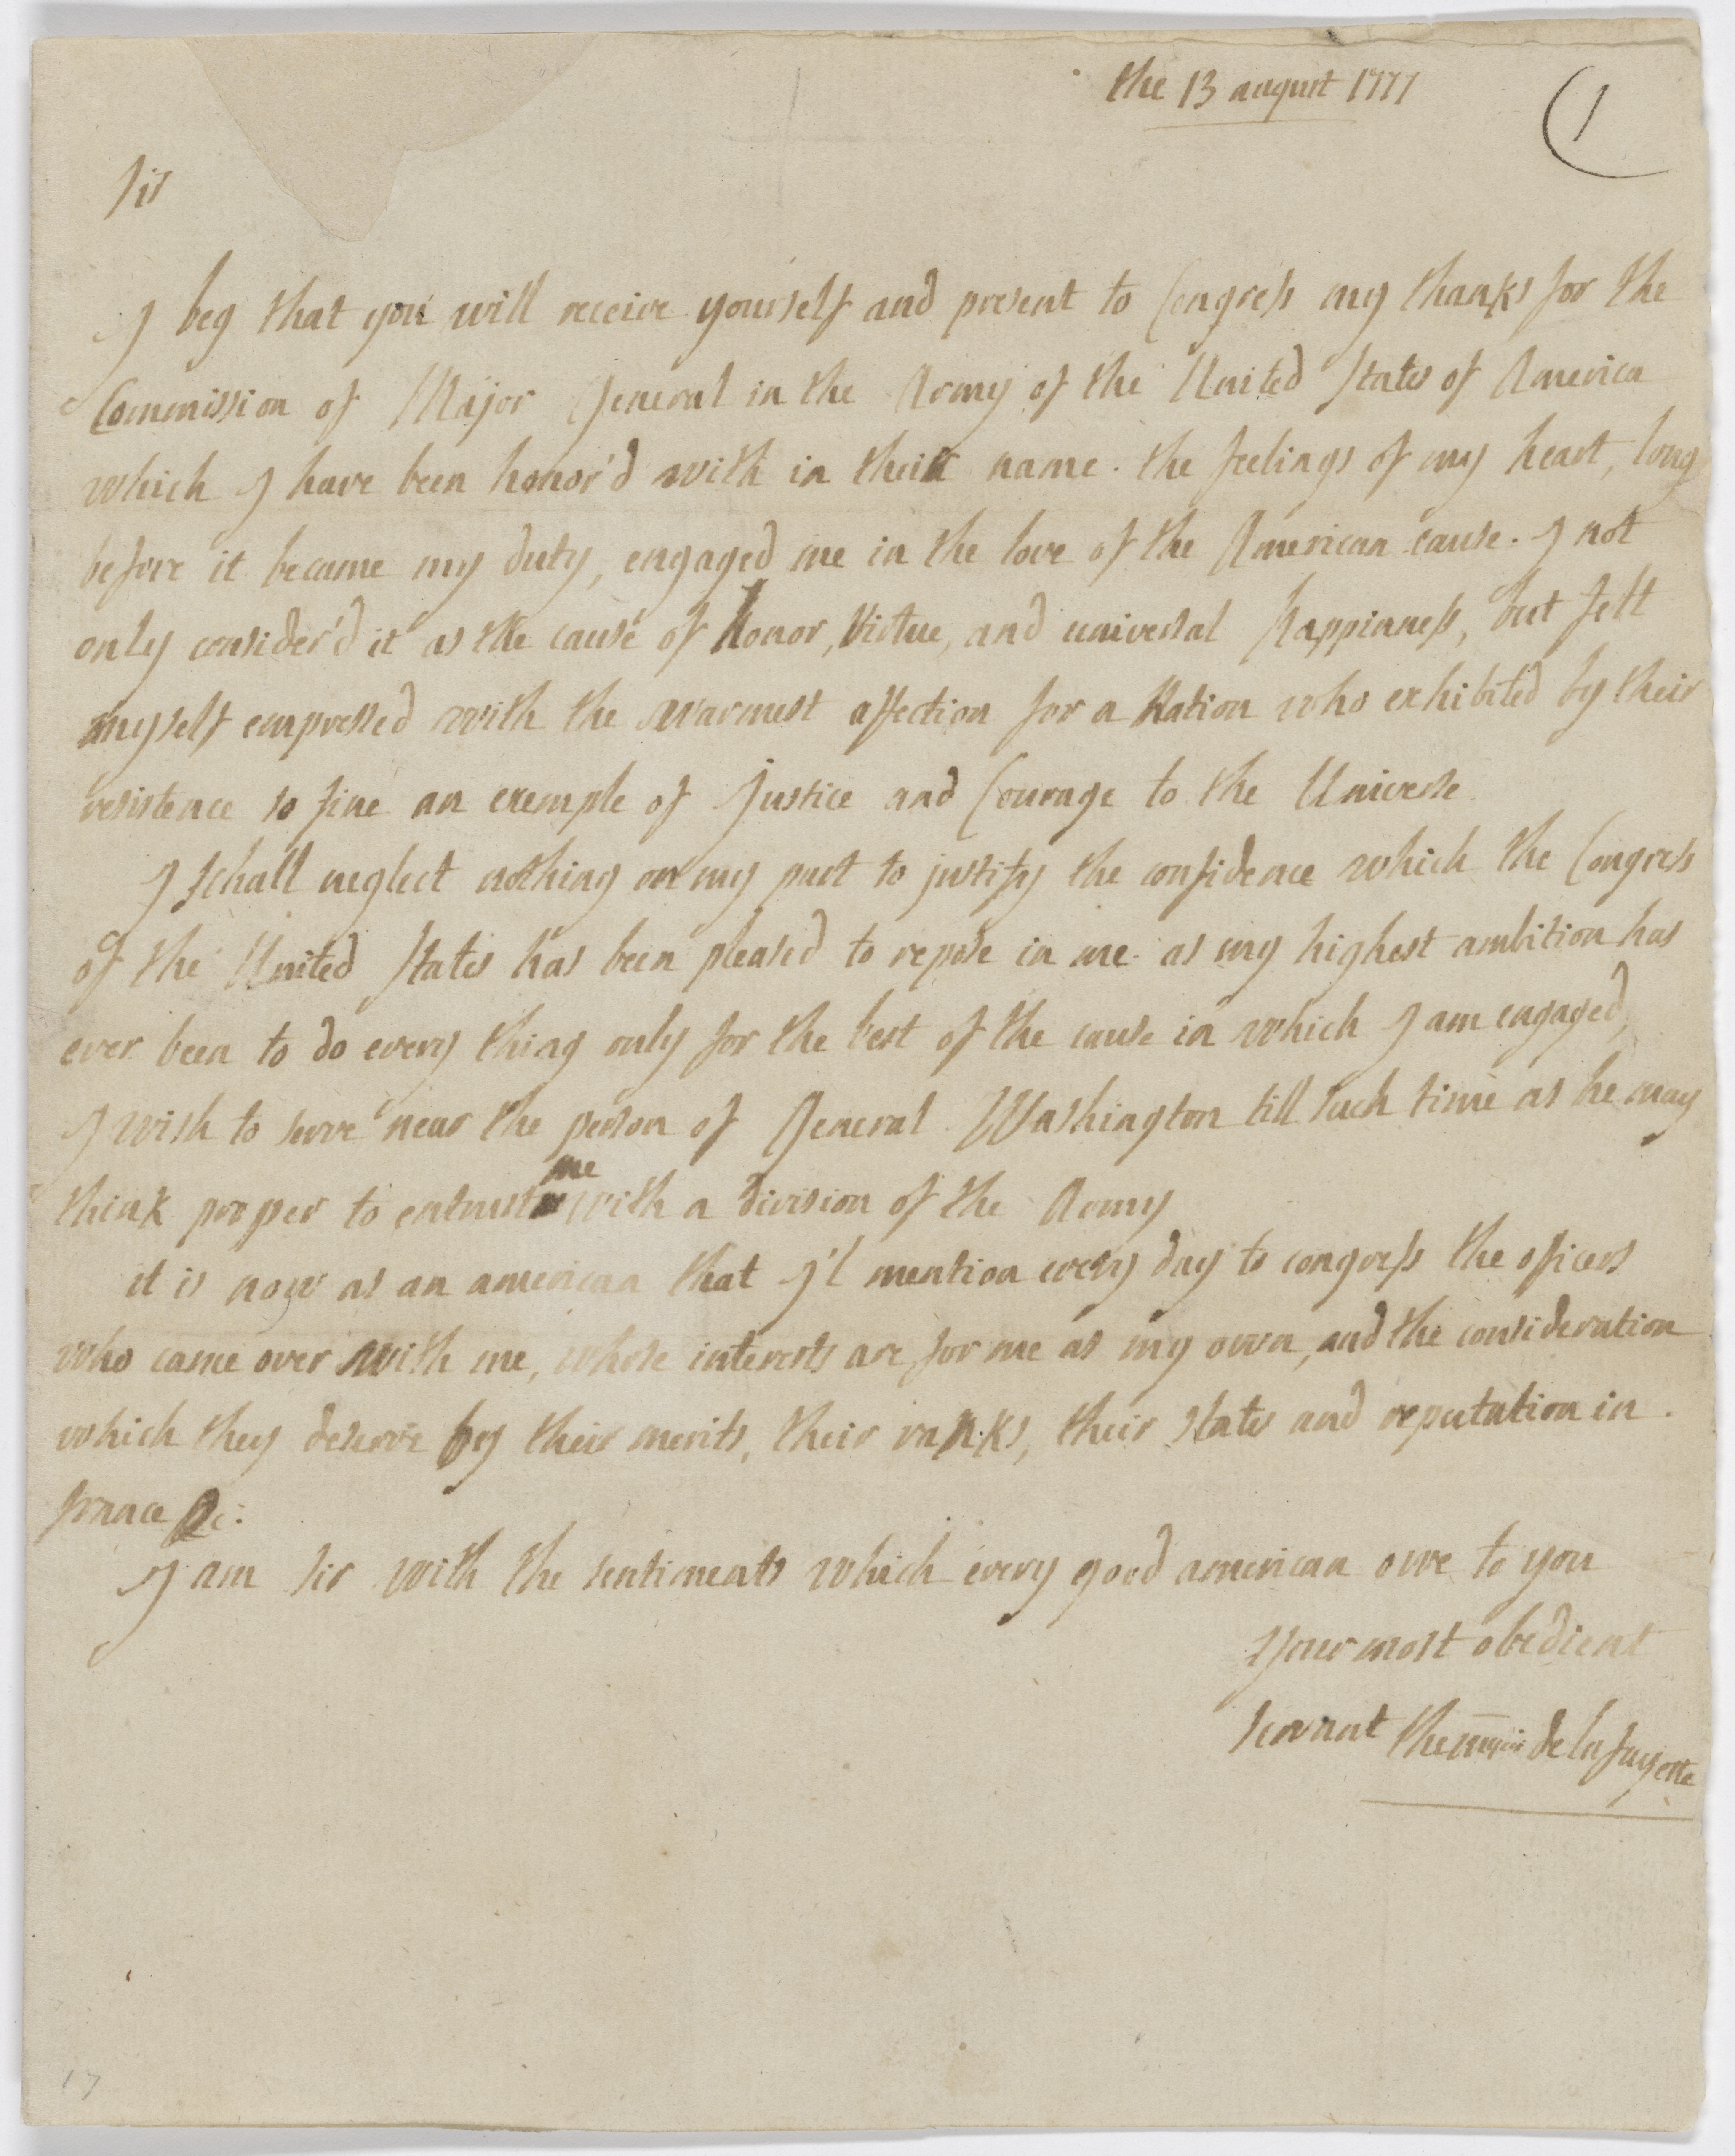 the 13 august 1777
(1
Sir
I beg that you will receive yourself and present to Congress my thanks for the
Commission of Major General in the Army of the United States of America
which I have been honor'd with in their name. the feelings of my heart, long
before it became my duty, engaged me in the love of the American cause. I not
only consider'd it as the cause of honor, Virtue, and universal happinness, but felt
myself empressed with the warmest affection for a Nation who exhibited by their
resistence so fine an exemple of Justice and Courage to the Universe.
I schall neglect nothing on my part to justify the confidence which the Congress
of the United States has been pleased to repose in me. as my highest ambition has
ever been to do every thing only for the best of the cause in which I am engaged,
I wish to serve near the person of General Washington till such time as he may
think proper to entrust me with a division of the Army
it is now as an american that I'l mention every day to congress the officers
who came over with me, whose interests are for me as my own, and the consideration
which they deserve by their merits, their ranks, their states and reputation in
france &c:
I am sir with the sentiments which every good american owe to you
Your most obedient
servant the mquis de lafayette
17